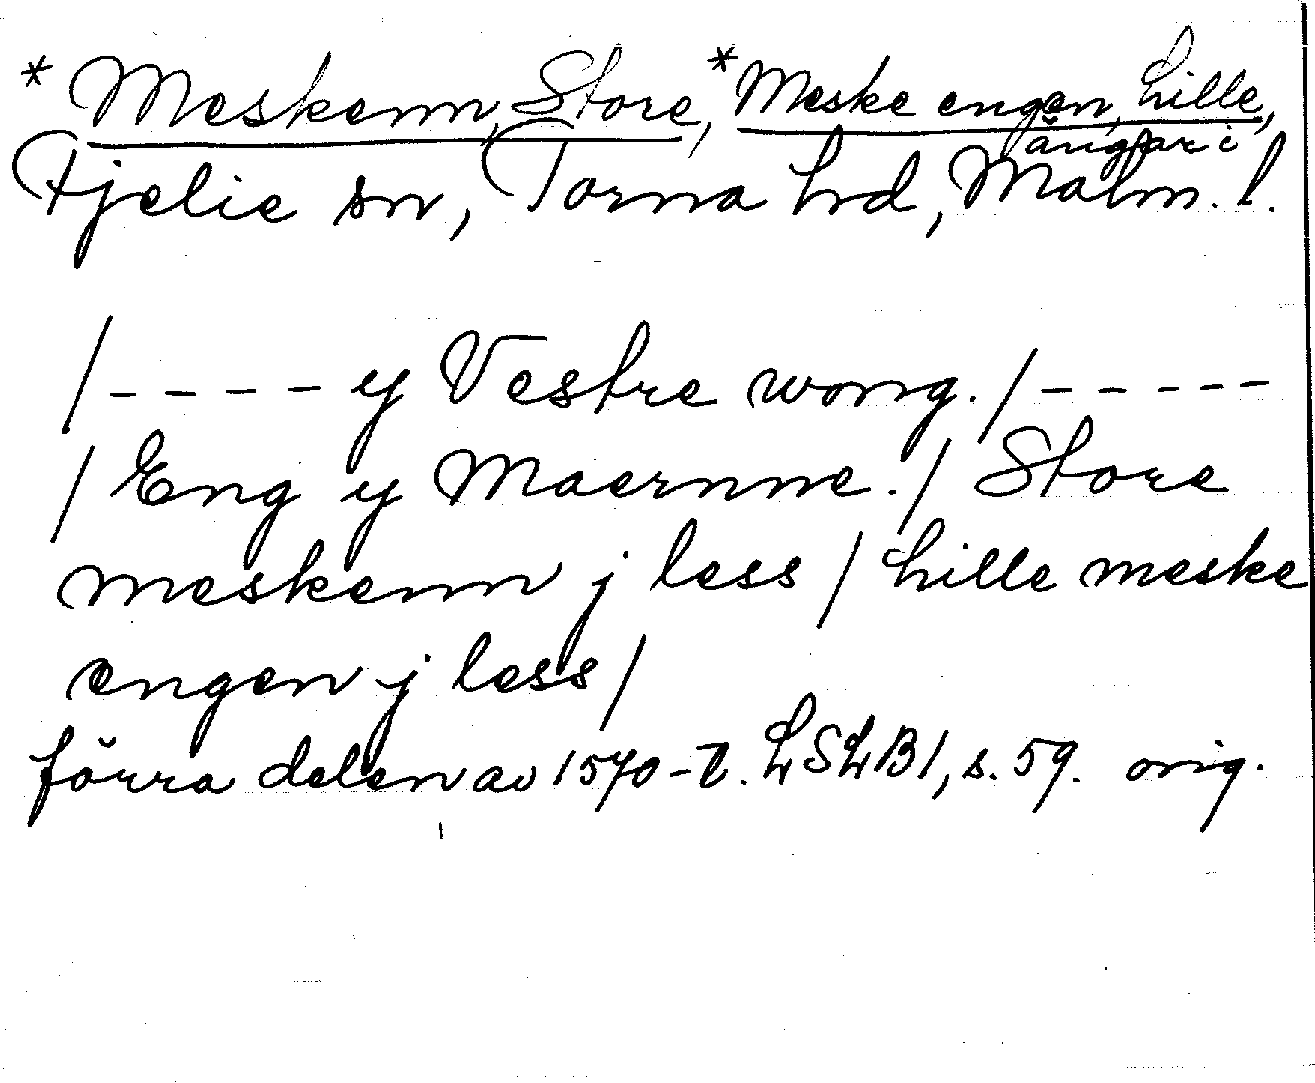 * Meskenn, Store, * Meske engen, Lille,
ängar i
Fjelie sn, Torna hd, Malm. l.
/ - - - - y Vestre wong. / - - - - -
/ Eng y Maernne. / Store
meskenn j less / Lille meske
engen j less /
förra delen av 1570-t. LSLB1, s. 59. orig.